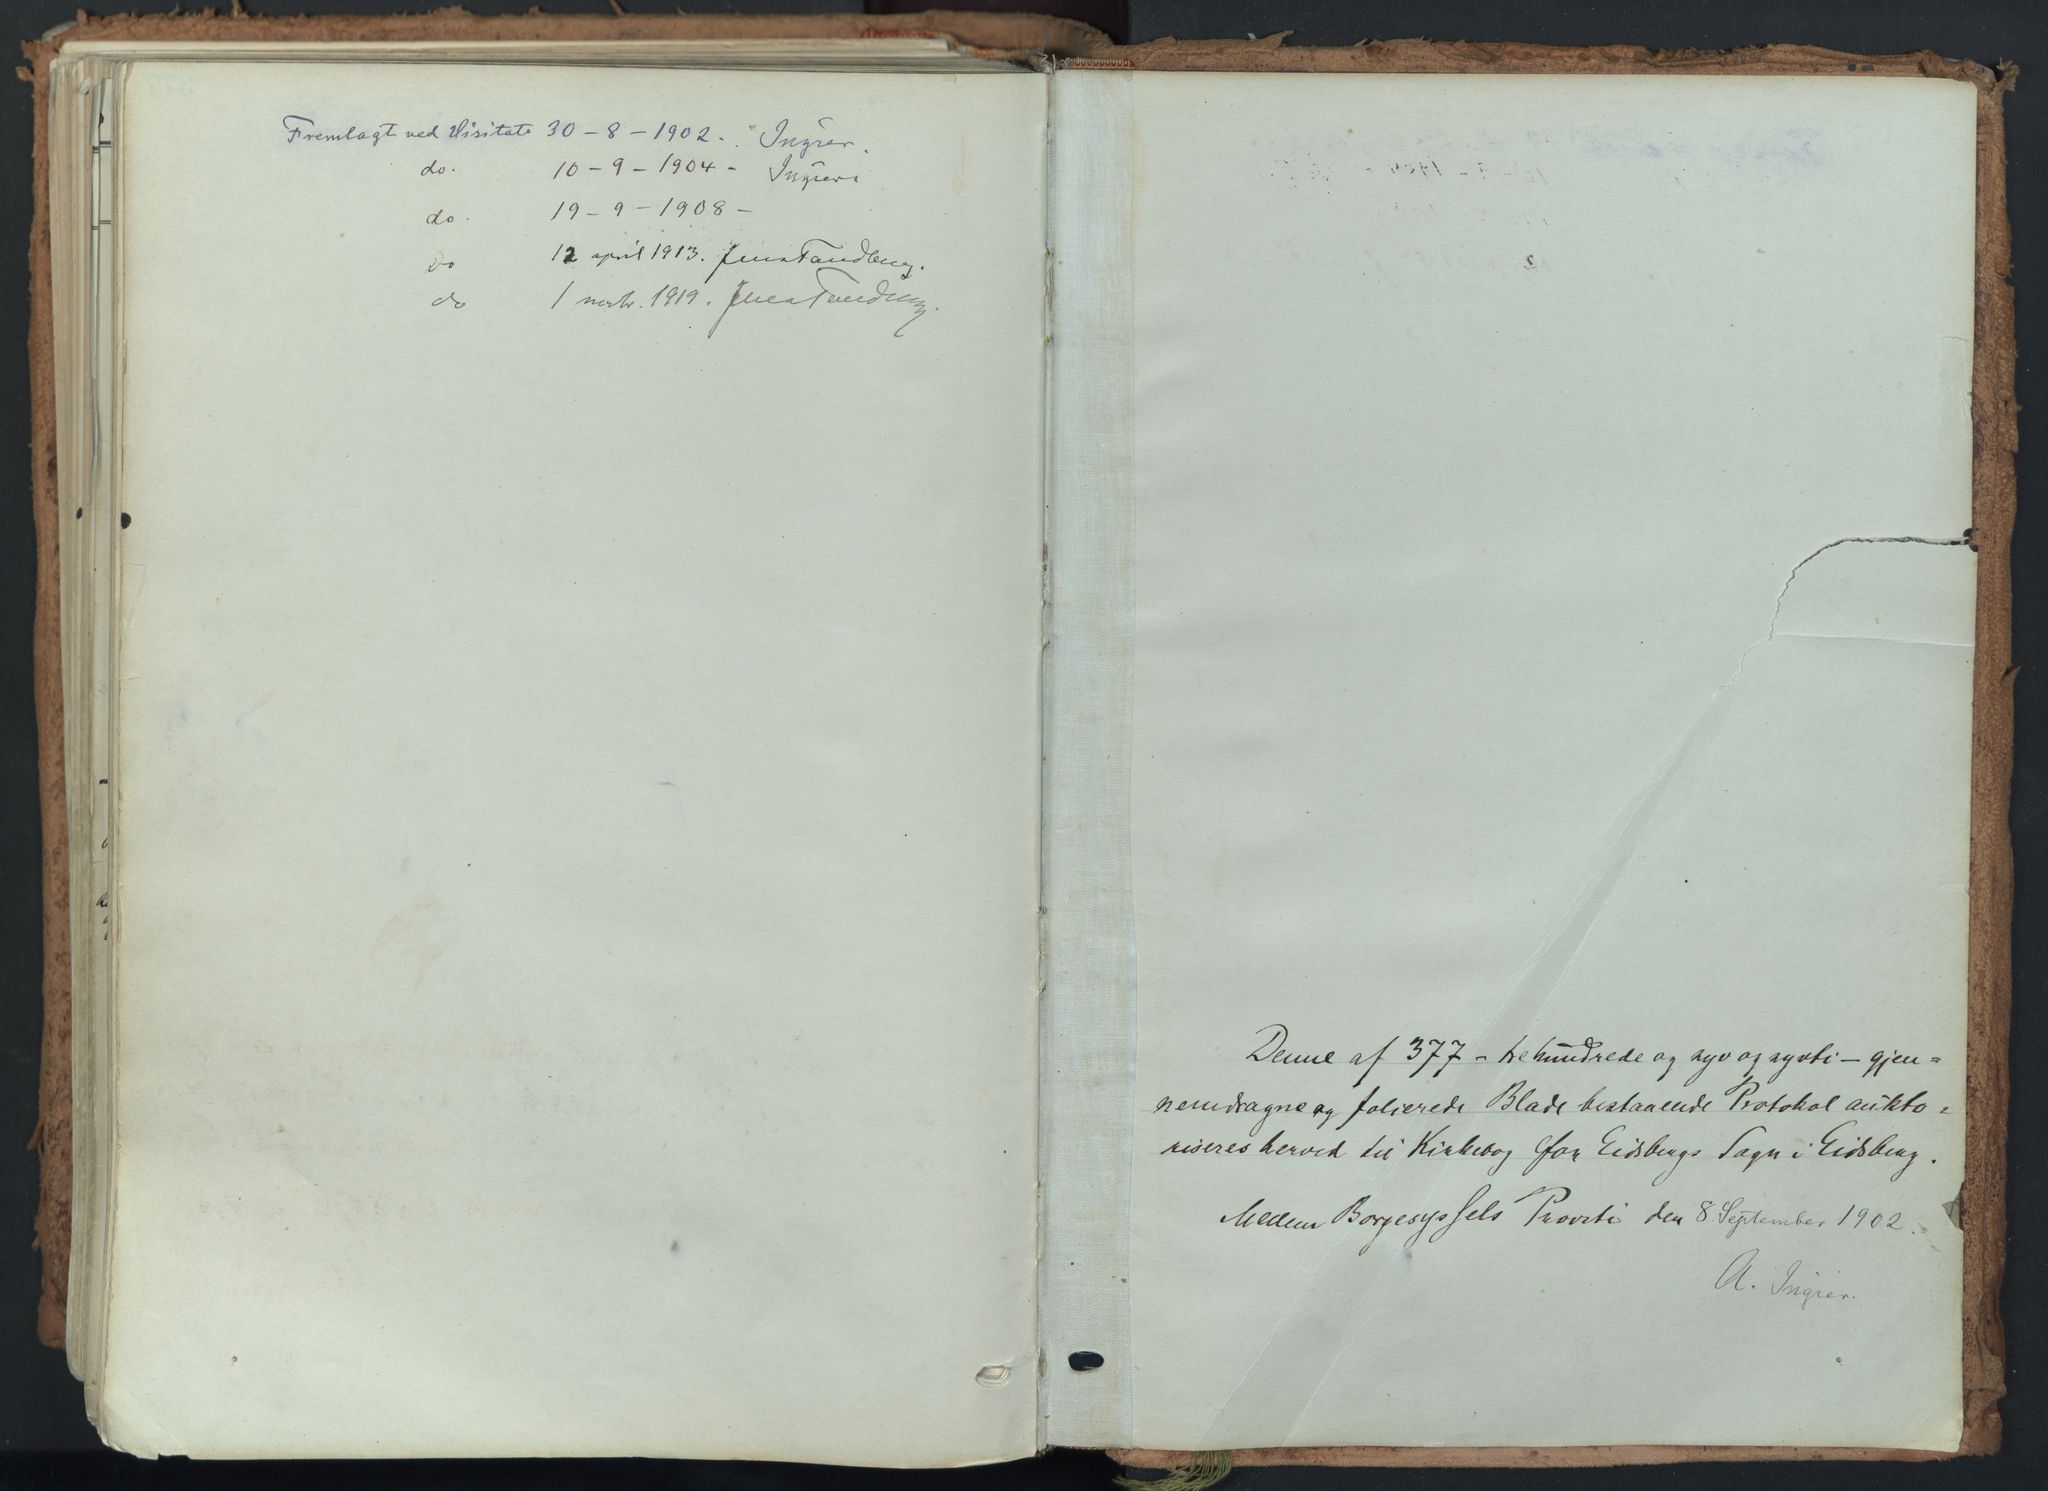 Fremlagt ved Visitats 30 – 8 – 1902 – Ingier.
do. 10 – 9 – 1904 – Ingier
do. 19 – 9 – 1908 –
Do 12 april 1913. Jens Tandberg.
do 1 novbr. 1919. Jens Tandberg.
Denne af 377 – trehundrede og syv og sytti – gjen=
nemdragne og folierede Blade bestaaende Protokol aukto=
riseres herved til Kirkebog for Eidsbergs Sogn i Eidsberg.
Mellem Borgesyssels Provsti den 8 September 1902.
A. Ingier.